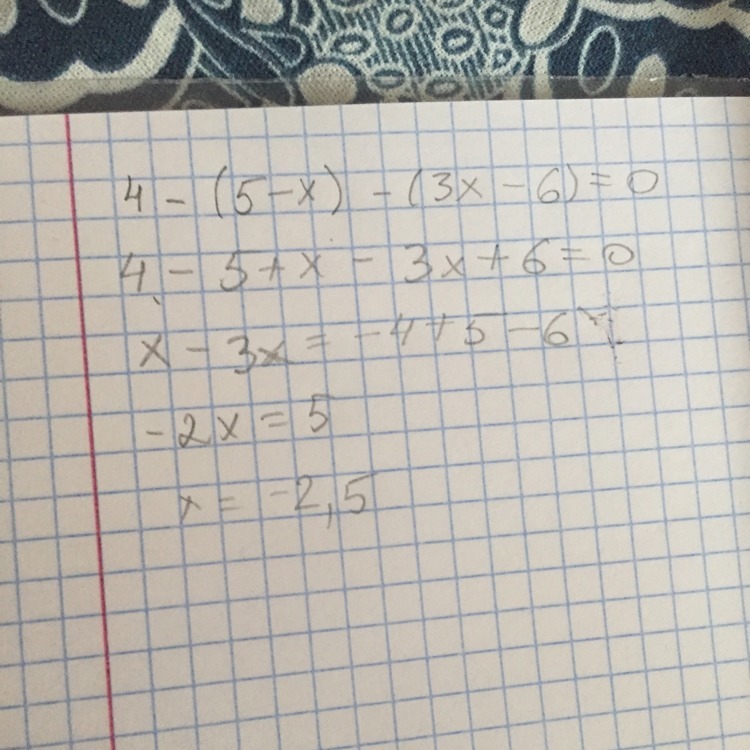 4 - (5 - x) - (3x - 6) = 0
4 - 5 + x - 3x + 6 = 0
x - 3x = -4 + 5 - 6
-2x = 5
x = -2,5